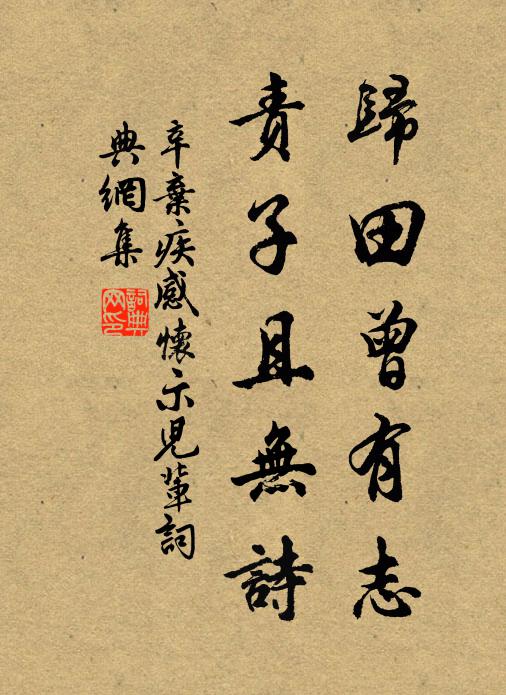 歸田曾有志
責子且無詩
辛棄疾感懷示兒輩詞
典網集
詞典網印